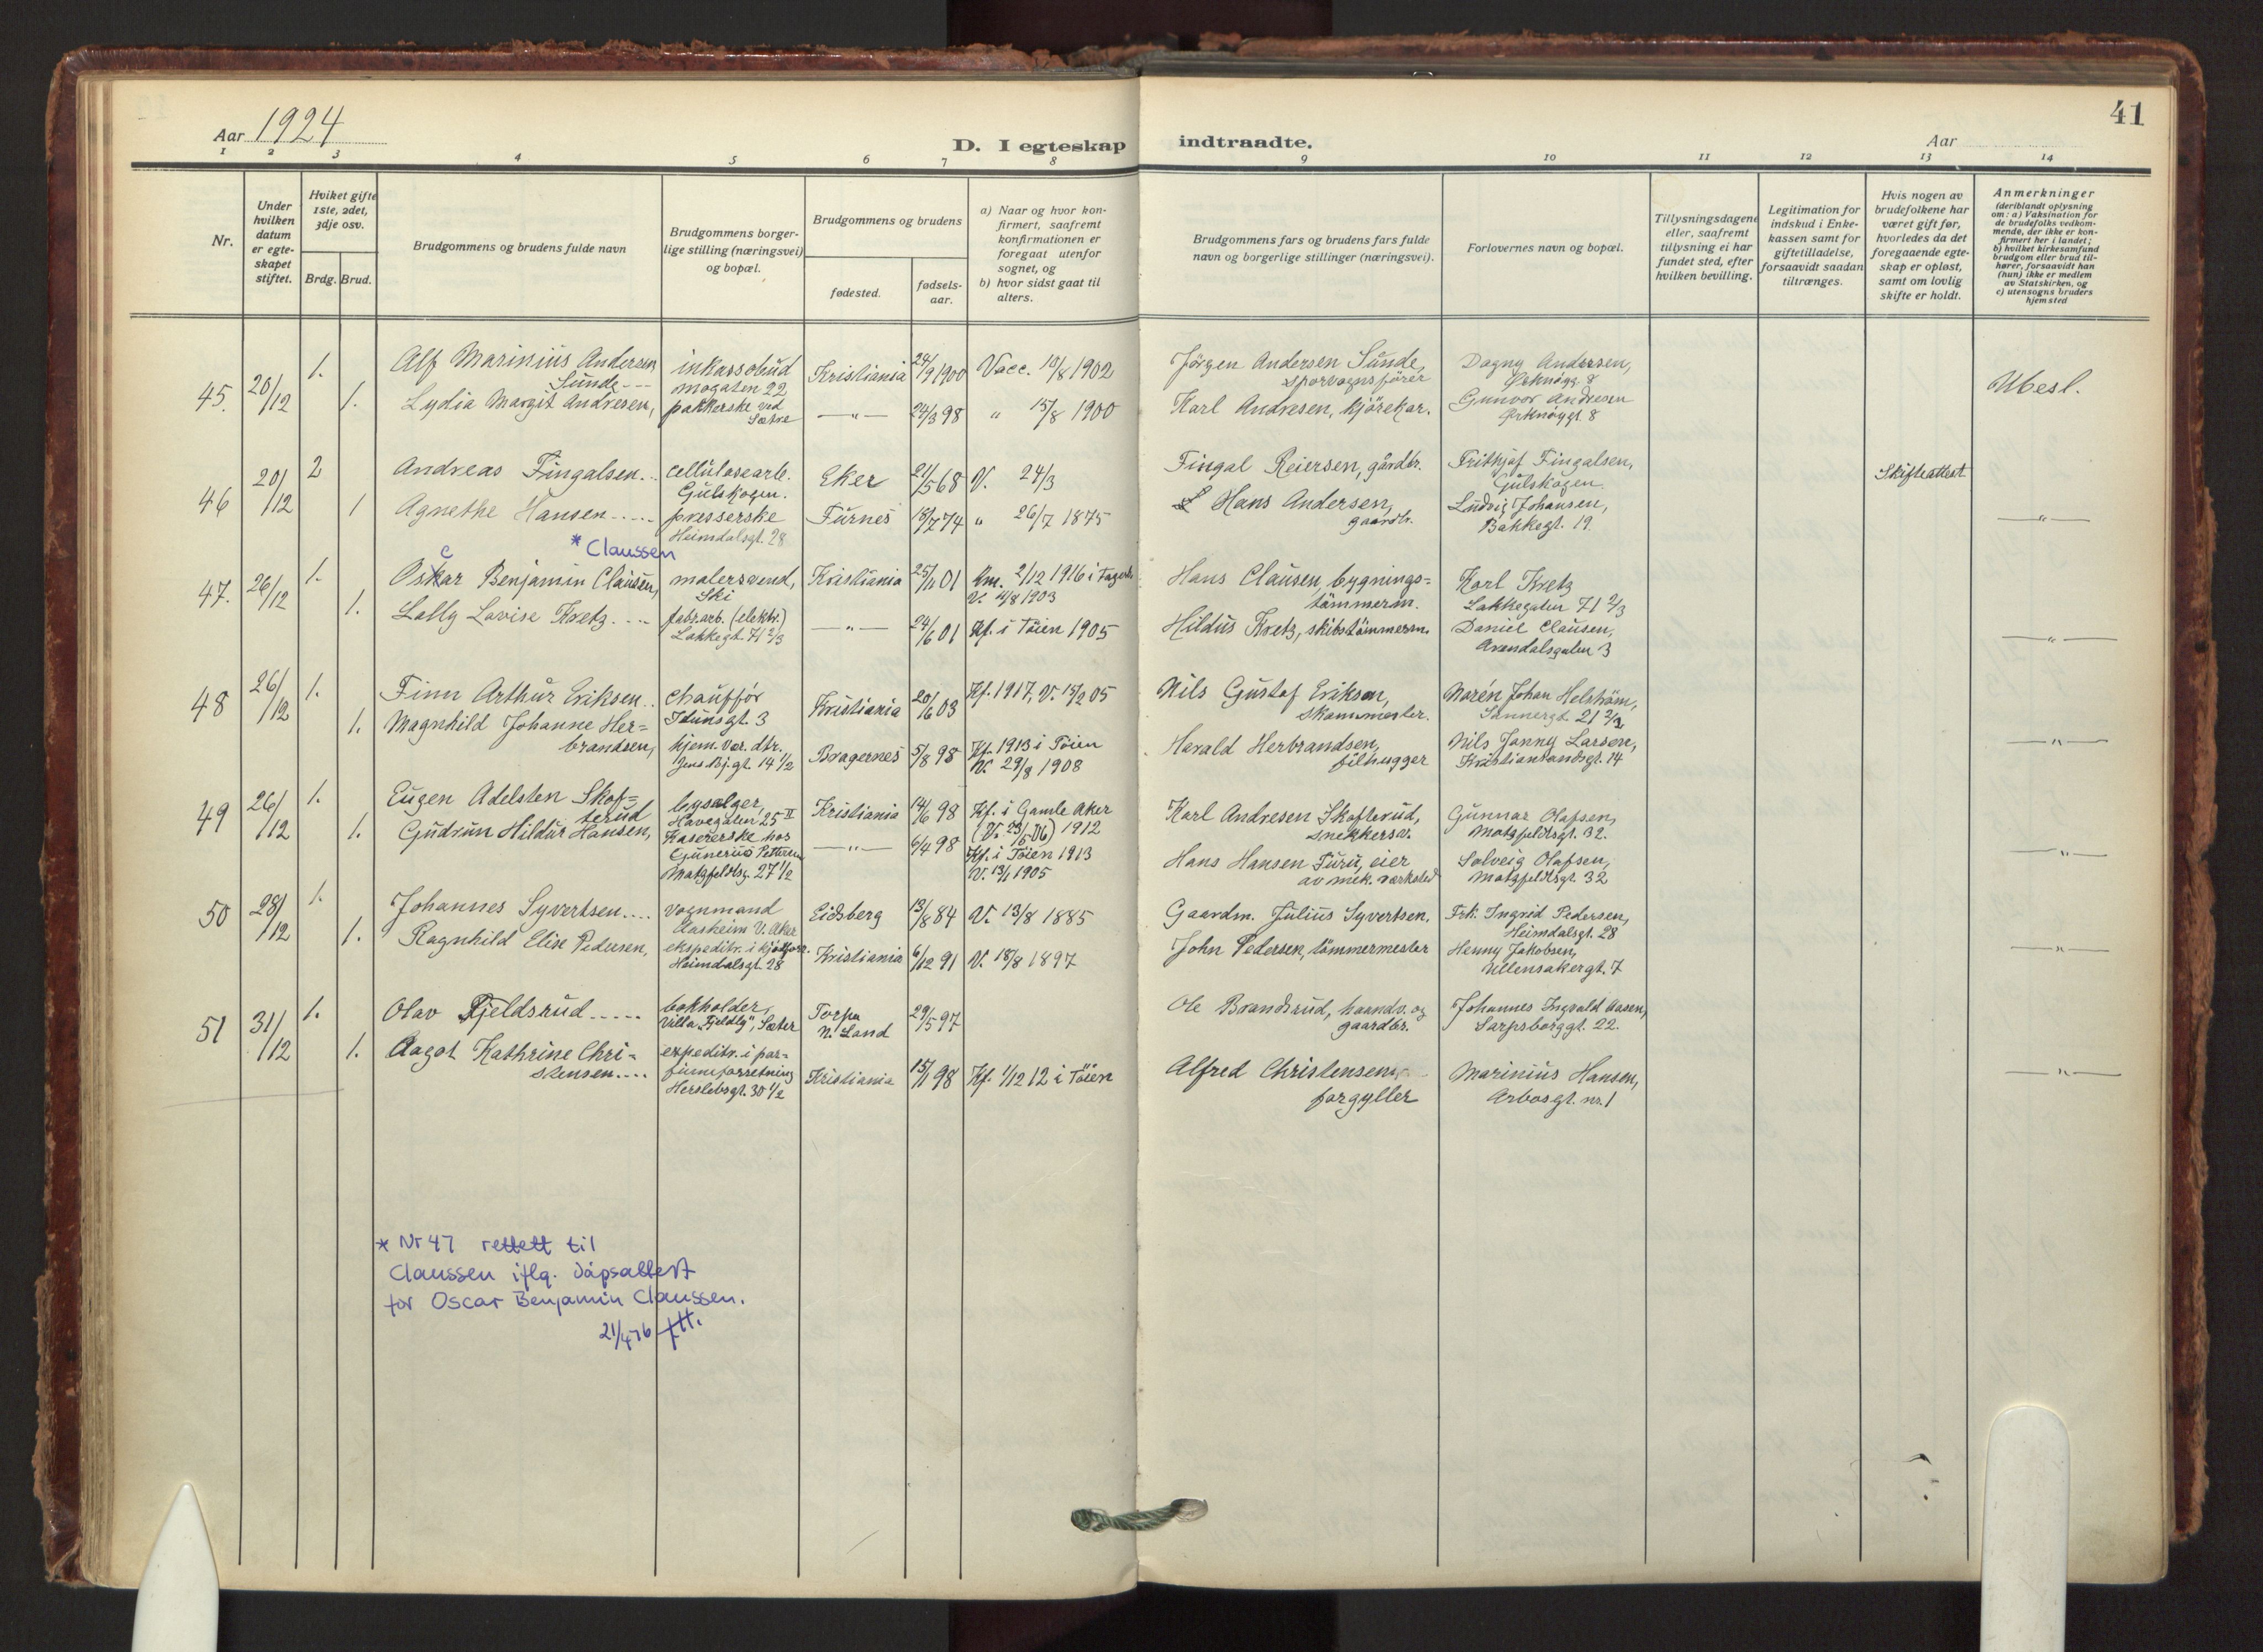 41
Aar 1924
D. I egteskap indtraadte.
Aar
1 2 3 4 5 6 7 8 9 10 11 12 13 14
Nr.
Under hvilken datum er egteskapet stiftet.
Hviket gifte 1ste, 2det, 3dje osv.
Brdg. Brud.
Brudgommens og brudens fulde navn
Brudgommens borgerlige stilling (næringsvei) og bopæl.
Brudgommens og brudens
fødested.
fødselsaar.
a) Naar og hvor konfirmert, saafremt konfirmationen er foregaat utenfor sognet, og
b) hvor sidst gaat til alters.
Brudgommens fars og brudens fars fulde navn og borgerlige stillinger (næringsvei).
Forlovernes navn og bopæl.
Tillysningsdagene eller, saafremt tillysning ei har fundet sted, efter hvilken bevilling.
Legitimation for indskud i Enkekassen samt for giftetilladelse, forsaavidt saadan tiltrænges.
Hvis nogen av brudefolkene har været gift før, hvorledes da det foregaaende egteskap er opløst, samt om lovlig skifte er holdt.
Anmerkninger
(deriblandt oplysning om: a) Vaksination for de brudefolks vedkommende, der ikke er konfirmert her i landet; b) hvilket kirkesamfund brudgom eller brud tilhører, forsaavidt han (hun) ikke er medlem av Statskirken, og c) utensogns bruders hjemsted
45. 20/12 1. Alf Marinius Andersen Sunde--- inkassobud Mogaten 22 Kristiania 24/9 1900 Vacc. 10/8 1902 Jörgen Andersen Sunde, sporvognsförer Dagny Andersen, Örknögt. 8 Ubesl.
1. Lydia Margit Andresen, pakkerske ved Sætre —"— 24/3 98 " 15/8 1900 Karl Andresen, kjörekar. Gunvor Andresen Örknöygt. 8
46 20/12 2 Andreas Fingalsen.. cellulosearb. Gulskogen. Eker 21/5 68 V. 24/3 Fingal Reiersen, gårdbr. Frithjof Fingalsen, Gulskogen. Skifteattest
1 Agnethe Hansen..... presserske Heimdalsgt. 28 Furnes 18/7 74 " 26/7 1875 Hans Andersen, gaardb. Ludvig Johansen, Bakkegt. 19. —"—
* Claussen
c
47. 26/12 1. Oskar Benjamin Clausen, malersvend, Ski Kristiania 25/11 01 2/12 1916 i V. 4/8 1903 Hans Clausen, bygnings=tömmerm. Karl Kretz Lakkegaten 71 2/3
1. Lally Lovise Kretz.... fabr.arb. (elektr.) Lakkegt. 71 2/3 —"— 24/6 01 Kf. i Töien 1905 Hildus Kretz, skibstömmerm. Daniel Clausen, Arendalsgaten 3 —"—
48 26/12 1. Finn Arthur Eriksen.. chauffór Idunsgt. 3 Kristiania 20/6 03 Kf. 1917, V. 15/2 05 Nils Gustaf Erikson, skommester. Marén Johan Helström, Sannergt. 21 2/3
1. Magnhild Johanne Her=brandsen, hjem.vær. dtr. Jens Bj. gt. 14 1/2 Bragernes 5/8 98 Kf. 1913 i Töien V. 29/8 1908 Harald Herbrandsen, filhugger Nils Jonny Larsen, Kristiansandsgt. 14 —"—
49 26/12 1. Eugen Adelsten Skof=terud bysælger, Havegaten 25 II Kristiania 14/6 98 Kf. i Gamle Aker (V. 23/5 06) 1912 Karl Andresen Skofterud, snekkersv. Gunnar Olafsen, Motzfeldtsgt. 32.
1. Gudrun Hildur Hansen, Kasererske hos Gunerius Pettersen Motzfeldtsg. 27 1/2 —"— 6/4 98 Kf. i Töien 1913 V. 13/1 1905 Hans Hansen Furu, eier av mek. værksted Solveig Olafsen, Motzfeldtsgt. 32 —"—
50 28/12 1. Johannes Syvertsen.... vognmand Aasheim V. Aker Eidsberg 13/8 84 V. 13/8 1885 Gaardm. Julius Syvertsen. Frk. Ingrid Pedersen, Heimdalsgt. 28
1. Ragnhild Elise Pedersen, ekspeditr. i kjötforr. Heimdalsgt. 28 Kristiania 6/12 91 V. 18/8 1897 John Pedersen, tömmermester Henny Jakobsen, Ullensakergt. 7 —"—
51 31/12 1. Olav Fjeldsrud..... bokholder, Villa „Fjeldly", Sæter Torpa N. Land 29/5 97 Ole Brandsrud, haandv. og gaardbr. Johannes Ingvald Aasen, Sarpsborggt. 22.
1. Aagot Kathrine Chri=stensen.... expeditr. i par=fumeforretning Herslebsgt. 30 1/2 Kristiania 15/11 98 Kf. 1/12 12 i Töien Alfred Christensen, forgyller Marinius Hansen, Arbosgt. nr. 1 —"—
* Nr 47 rettett til
Claussen iflg. dåpsattest
for Oscar Benjamin Claussen.
21/4 76